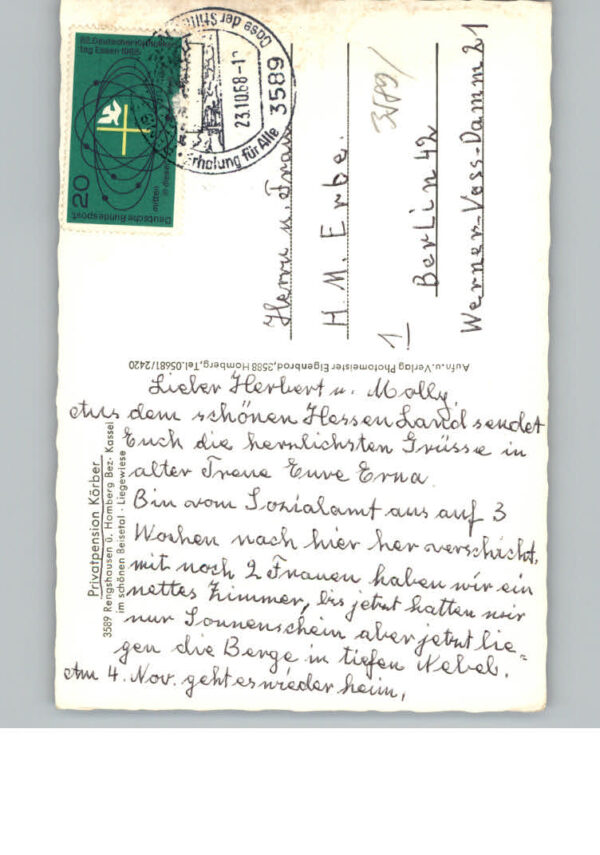 82. Deutscher Katholiken-
tag Essen 1968
mitten
in dieser
20
Deutsche Bundespost
Oase der Stille
3589
23.10.68-1
Erholung für Alle
3589/
Herrn u. Frau
H. M. Erbe.
1
Berlin 42
Werner-Voss-Damm 21
Aufn. u. Verlag Photomeister Eigenbrod, 3588 Homberg, Tel. 05681/2420
Privatpension Körber
3589 Rengshausen ü. Homberg Bez. Kassel
im schönen Beisetal · Liegewiese
Lieber Herbert u. Molly,
Aus dem schönen Hessen Land sendet
Euch die herrlichsten Grüsse in
alter Treue Eure Erna.
Bin vom Sozialamt aus auf 3
Wochen nach hier her verschickt,
mit noch 2 Frauen haben wir ein
nettes Zimmer, bis jetzt hatten wir
nur Sonnenschein aber jetzt lie=
gen die Berge in tiefen Nebel.
Am 4. Nov. geht es wieder heim.